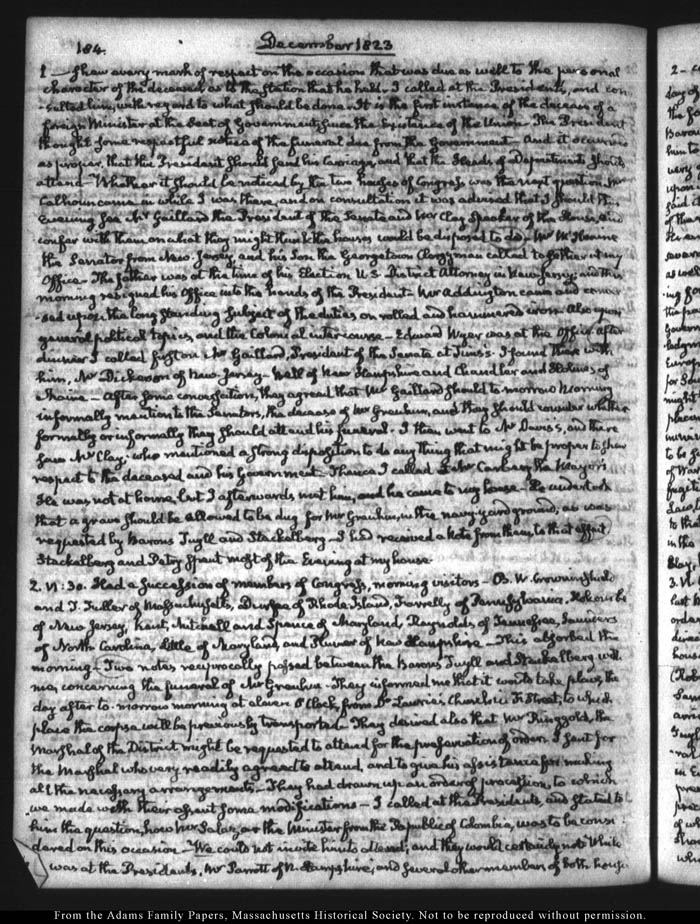 184.
December 1823
1 — shew every mark of respect on the occasion that was due as well to the personal
character of the deceased, as to the station that he held. I called at the President's, and con
-sulted him, with regard to what should be done. It is the first instance of the decease of a
foreign Minister at the Seat of Government, since the Existence of the Union. The President
thought some respectful notice of the funeral due from the Government — And it occurred
as proper, that the President should send his Carriage, and that the Heads of Departments should
attend — Whether it should be noticed by the two houses of Congress was the next question. Mr
Calhoun came in while I was there, and on consultation it was advised that I should this
Evening see Mr Gaillard the President of the Senate and Mr Clay Speaker of the House, and
confer with them on what they might think the houses would be disposed to do. Mr McIlvaine
the Senator from New-Jersey, and his Son the Georgetown Clergyman called together at my
Office. The father was at the time of his Election U.S. District Attorney in New Jersey, and this
morning resigned his Office into the hands of the President. Mr Addington came and conver
-sed upon the long standing subject of the duties on rolled and hammered iron. Also upon
general political topics, and the Colonial intercourse — Edward Wyer was at the Office. After
dinner I called first on Mr Gaillard, President of the Senate at I found there with
him, Mr Dickerson of New-Jersey — Bell of New Hampshire and Chandler and Holmes of
Maine — After some conversation, they agreed that Mr Gaillard should to-morrow Morning
informally mention to the Senators, the decease of Mr Greuhm, and they should consider whether
formally or informally they should attend his funeral. I then went to Mr Davis's, and there
saw Mr Clay; who mentioned a strong disposition to do any thing that might be proper to shew
respect to the deceased and his Government. Thence I called at Mr Carbery the Mayor's
He was not at home, but I afterwards met him, and he came to my house — He undertook
that a grave should be allowed to be dug for Mr Greuhm, in the navy-yard ground, as was
requested by Barons Tuyll and Stackelberg — I had received a Note from them, to that effect
Stackelberg and Petry spent most of the Evening at my house.
2. VI:30. Had a succession of members of Congress, morning visitors — B. W. Crowninshield
and T. Fuller of Massachusetts, Durfee of Rhode-Island, Farrelly of Pennsylvania, Holcombe
of New Jersey, Kent, Mitchell and Spence of Maryland, Reynolds of Tennessee, Saunders
of North Carolina, Little of Maryland, and Plumer of New Hampshire — This absorbed the
morning — Two notes reciprocally passed between the Barons Tuyll and Stackelberg with
me, concerning the funeral of Mr Greuhm — They informed me that it would take place, the
day after to-morrow morning at eleven O'Clock, from Dr Laurie's Church in F. Street, to which
place the corpse will be previously transported. They desired also that Mr Ringgold, the
Marshal of the District might be requested to attend for the preservation of order. I sent for
the Marshal who very readily agreed to attend, and to give his assistance for making
all the necessary arrangements — They had drawn up an order of procession, to which
we made with their assent some modifications — I called at the President's, and stated to
him the question, how Mr Salazar the Minister from the Republic of Colombia, was to be consi
dered on this occasion — We could not invite him to attend, and they would certainly not. While
I was at the Presidents, Mr Parrott of N. Hampshire, and several other members of both houses
From the Adams Family Papers, Massachusetts Historical Society. Not to be reproduced without permission.